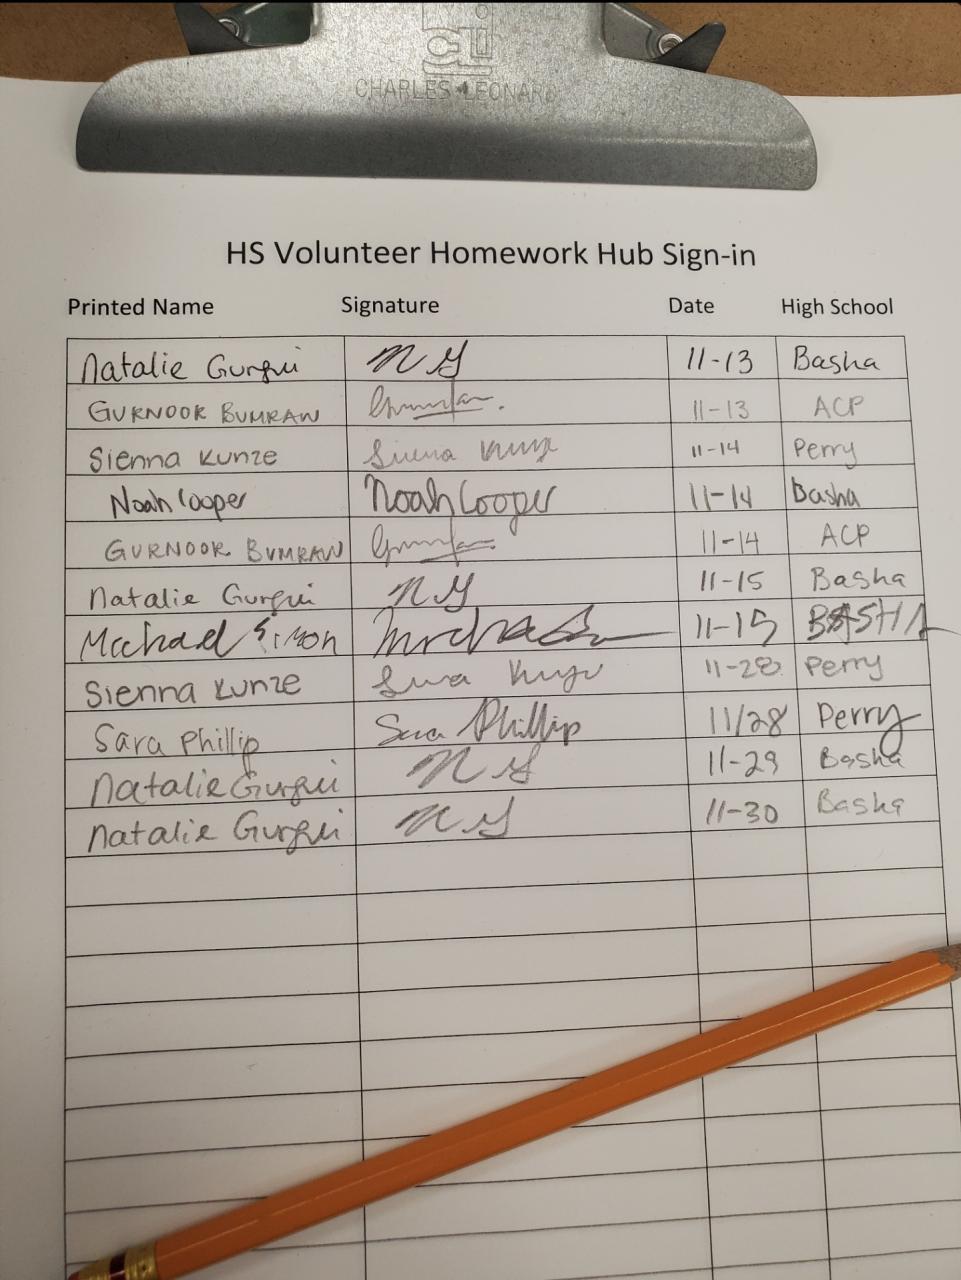 CHARLES LEONARD
HS Volunteer Homework Hub Sign-in
Printed Name Signature Date High School
Natalie Gurgui N G 11-13 Basha
GURNOOR BUMRAW 11-13 ACP
Sienna Kunze Sienna Kunze 11-14 Perry
Noah Cooper Noah Cooper 11-14 Basha
GURNOOR BUMRAW 11-14 ACP
Natalie Gurgui N G 11-15 Basha
Michael Simon 11-15 BASHA
Sienna Kunze 11-28 Perry
Sara Phillip Sara Phillip 11/28 Perry
Natalie Gurgui N G 11-29 Basha
Natalie Gurgui N G 11-30 Basha